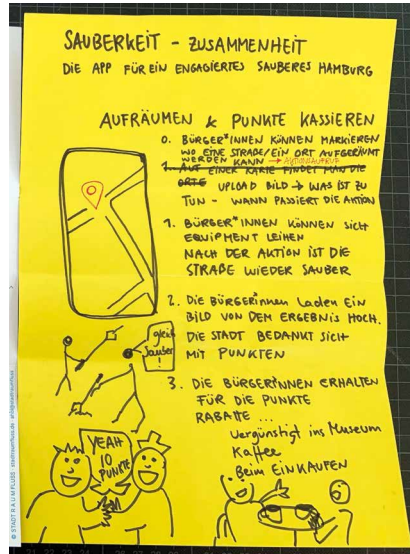 SAUBERKEIT - ZUSAMMENHEIT
DIE APP FÜR EIN ENGAGIERTES SAUBERES HAMBURG
AUFRÄUMEN & PUNKTE KASSIEREN
0. BÜRGER*INNEN KÖNNEN MARKIEREN
WO EINE STRAßE/EIN ORT AUFGERÄUMT
WERDEN KANN → AKTIONSAUFRUF
1. AUF EINER KARTE FINDET MAN DIE
ORTE UPLOAD BILD → WAS IST ZU
TUN - WANN PASSIERT DIE AKTION
1. BÜRGER*INNEN KÖNNEN SICH
EQUIPMENT LEIHEN
NACH DER AKTION IST DIE
STRAßE WIEDER SAUBER
2. Die BÜRGERinnen laden EIN
BILD VON DEM ERGEBNIS HOCH.
DIE STADT BEDANKT SICH
MIT PUNKTEN
gleich
sauber
!
3. DIE BÜRGERINNEN ERHALTEN
FÜR DIE PUNKTE
RABATTE ...
Vergünstigt ins Museum
Kaffee
Beim EINKAUFEN
YEAH
10
PUNKTE
© STADT R A U M F L U S S